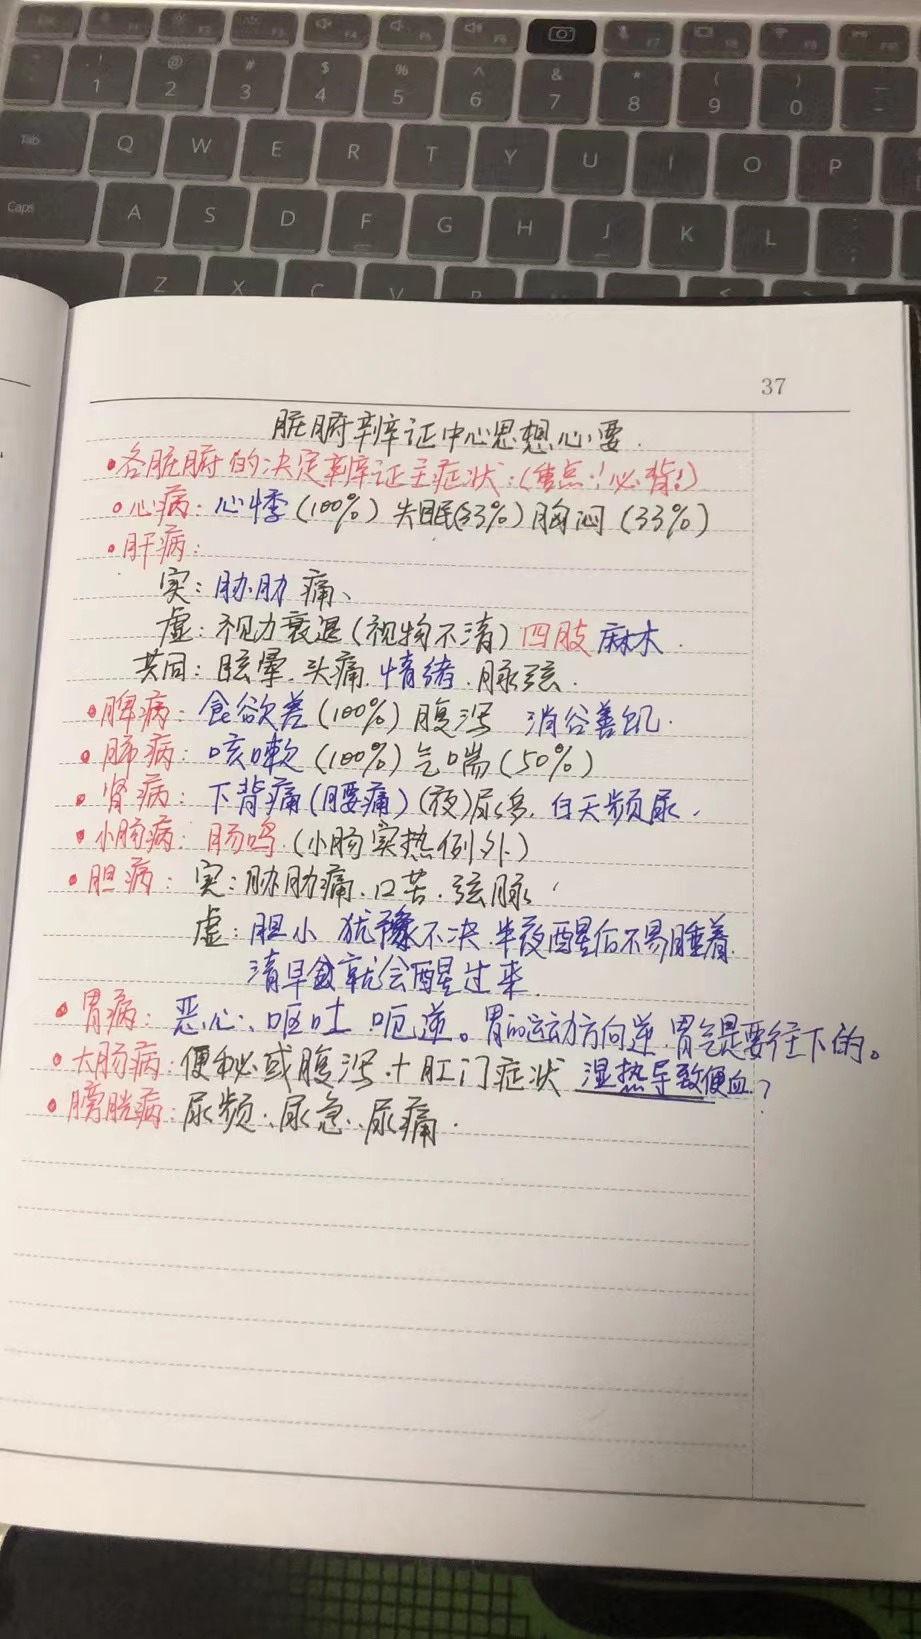 F1 F2 F3 F4 F5 F6 F7 F8 F9 F10
! @ # $ % ^ & * ( ) _
1 2 3 4 5 6 7 8 9 0 -
Tab Q W E R T Y U I O P
Caps A S D F G H J K L
Z X C V B
37
脏腑辨证中心思想心要.
•各脏腑的决定辨证主症状:(重点!必背!)
•心病: 心悸(100%) 失眠(33%) 胸闷(33%)
•肝病:
实: 胁肋痛、
虚: 视力衰退(视物不清) 四肢麻木.
共同: 眩晕.头痛.情绪.脉弦.
•脾病: 食欲差(100%) 腹泻 消谷善饥.
•肺病: 咳嗽(100%) 气喘(50%)
•肾病: 下背痛(腰痛)(夜)尿多. 白天频尿.
•小肠病: 肠鸣.(小肠实热例外)
•胆病: 实: 胁肋痛.口苦.弦脉
虚: 胆小 犹豫不决.半夜醒后不易睡着.
清早就会醒过来.
•胃病: 恶心、呕吐 呃逆。胃的运动方向逆.胃气是要往下的。
•大肠病: 便秘或腹泻.+肛门症状 湿热导致便血?
•膀胱病: 尿频.尿急.尿痛.